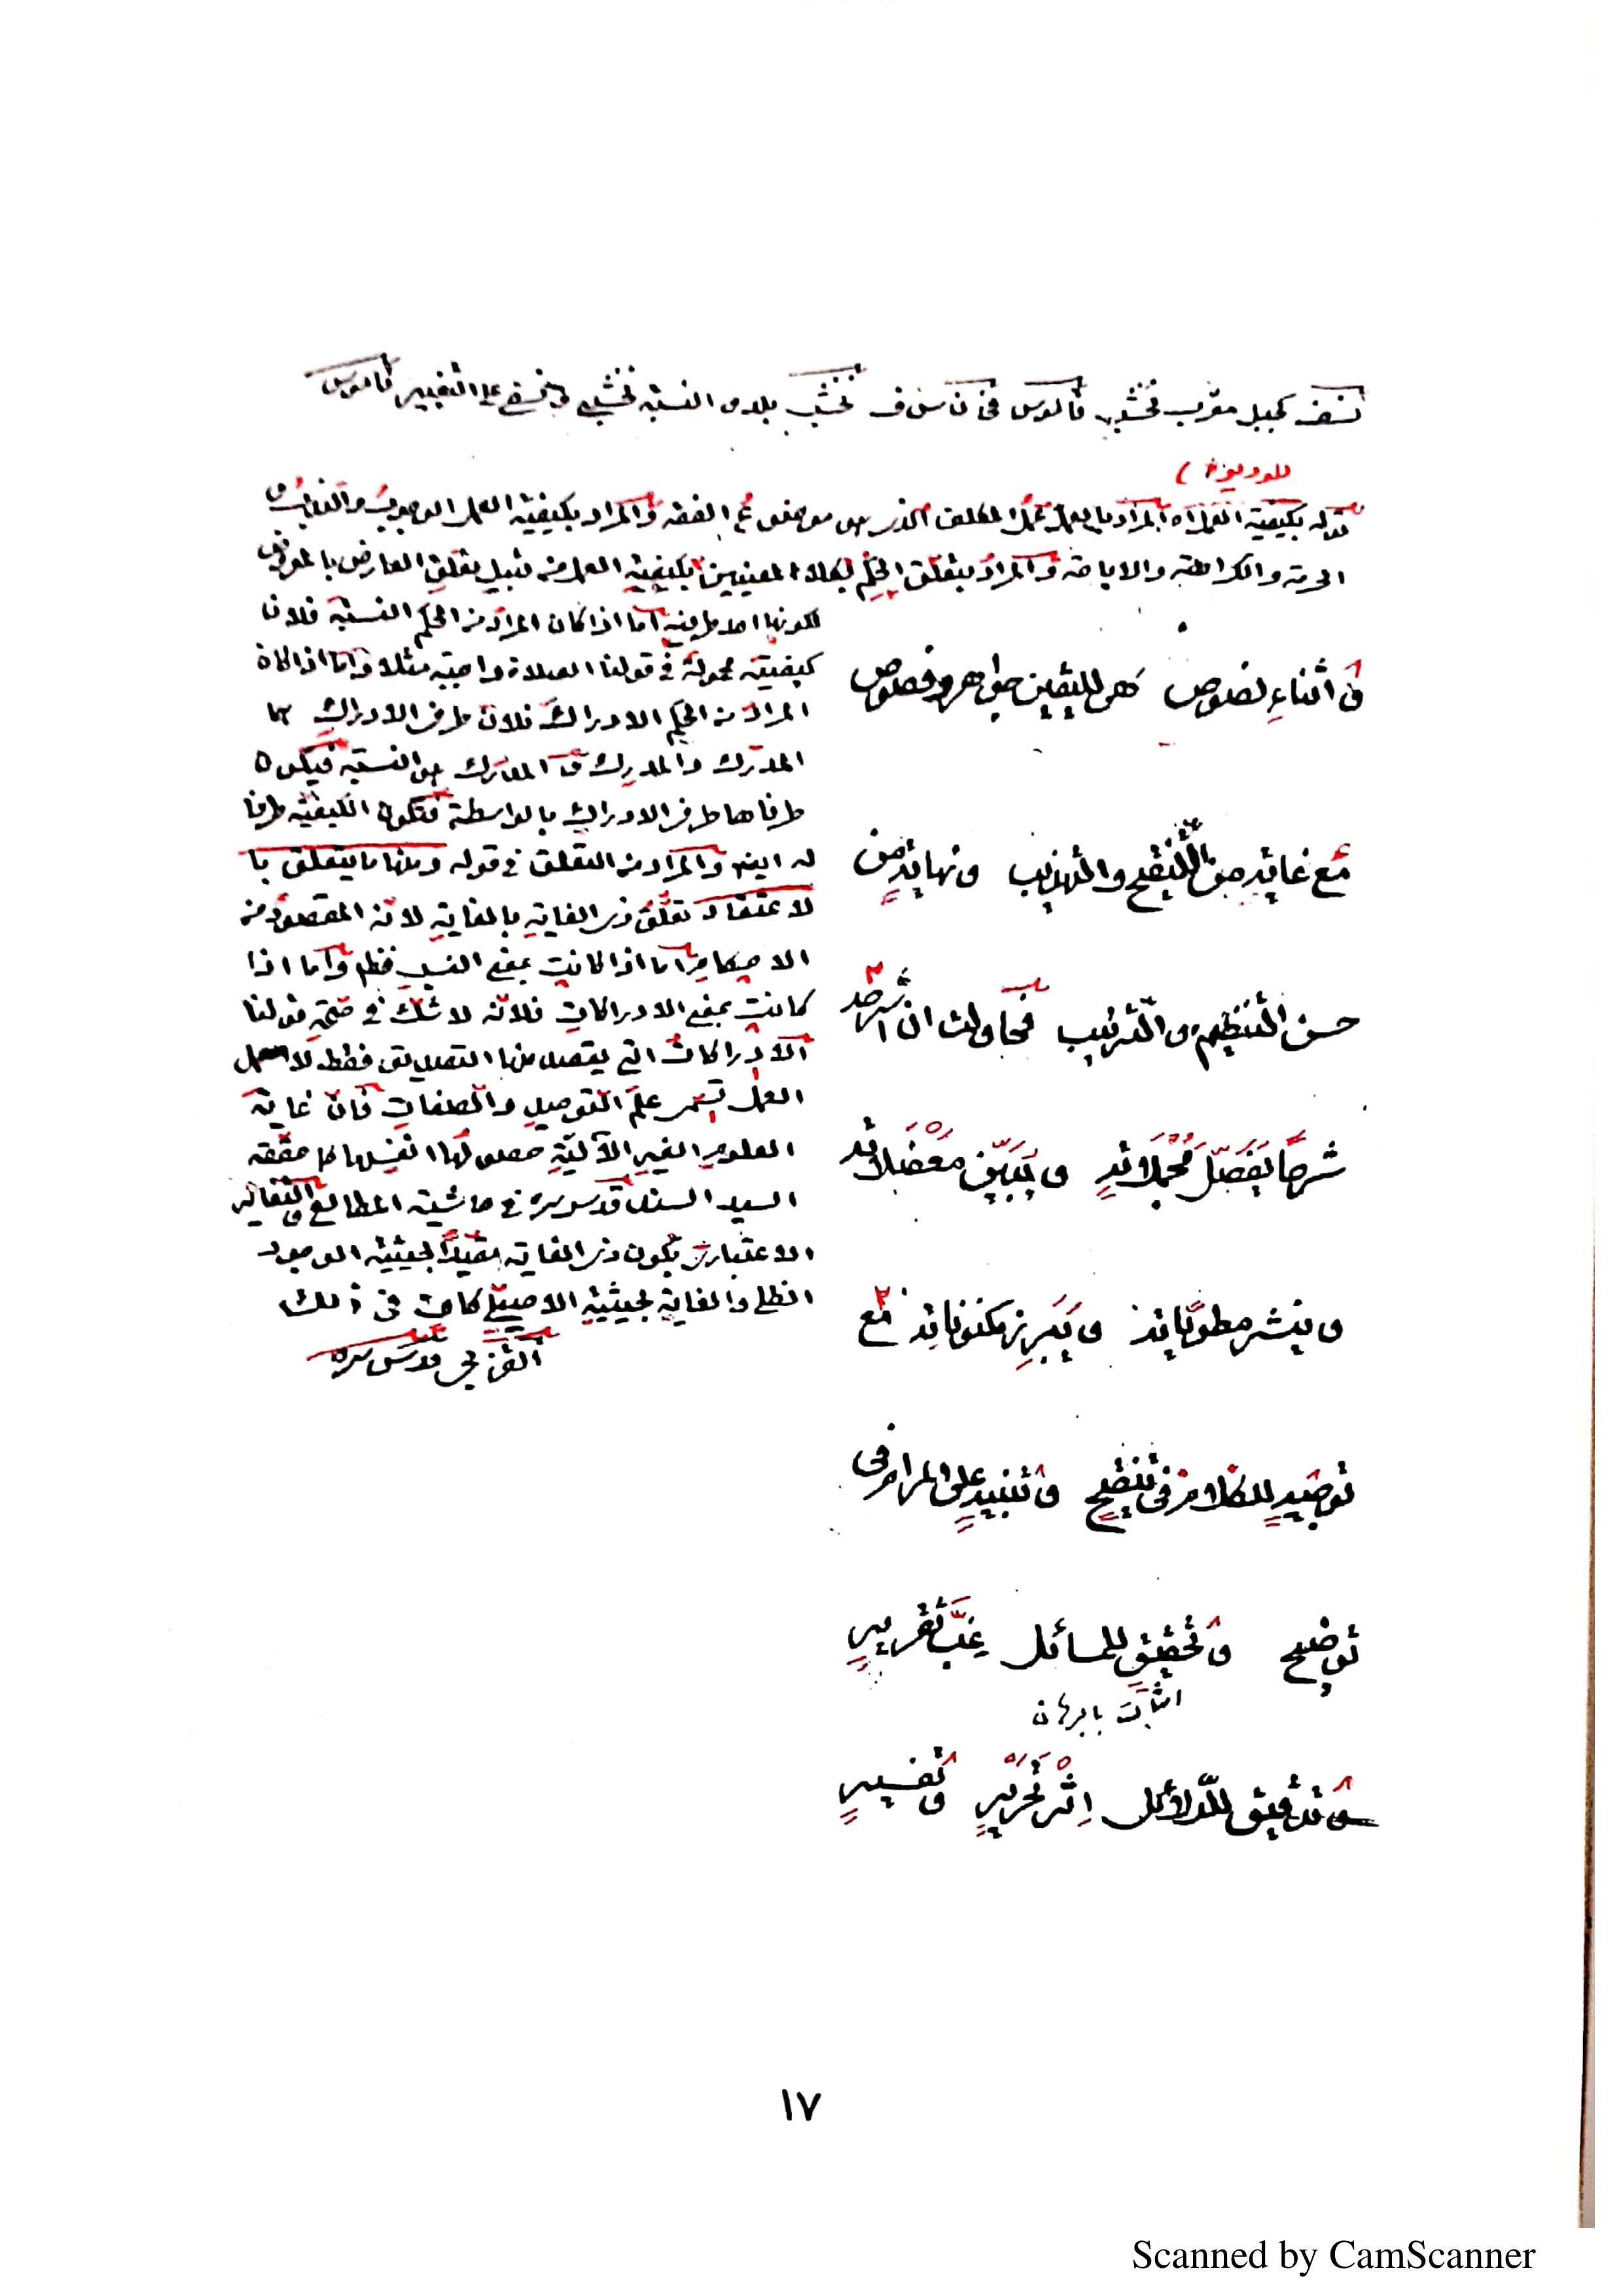 نسف كجبل معرب نخشب قاموس نخشب بلد والنسبة نخشبي ونسفي على التغيير قاموس
قوله بكيفية العمل اه المراد بالعمل عمل المكلف الذي هو موضوع علم الفقه والمراد بكيفية العمل الوجوب والندب و
الحرمة والكراهة والاباحة والمراد بتعلق الحكم بكلا المعنيين بكيفية العمل من قبيل تعلق العارض بالمعروض
لكونها احد طرفيه اما اذا كان المراد من الحكم النسبة فلان
كيفيته محمولة في قولنا الصلاة واجبة مثلا واما اذا كان
المراد من الحكم الادراك فلان طرف الادراك
المدرك والمدرك هو النسبة فيكون
طرفاها طرفي الادراك بالواسطة فتكون الكيفية طرفا
له ايضا والمراد من التعلق في قوله ومنها ما يتعلق با
لاعتقاد تعلق ذي الغاية بالغاية لانه المقصود من
الاحكام اما اذا كانت بمعنى النسب فظاهر واما اذا
كانت بمعنى الادراكات فلانه لا شك في صحة قولنا
الادراكات التي يقصد منها التصديق فقط لا
العمل تسمى علم التوحيد والصفات فان غاية
العلوم الغير الآلية حصولها انفسها كما حققه
السيد السند قدس سره في حاشية المطالع والتغاير
الاعتباري بكون ذي الغاية مقيدا بحيثية الوجود
الظلي والغاية بحيثية الاصيلي كاف في ذلك
القزلجي قدس سره
في اثناء نصوص هي لليقين جواهر وفصوص
مع غاية من التنقيح والتهذيب ونهاية من
حسن التنظيم والترتيب فحاولت ان اشرحه
شرحا يفصل مجملاته ويبين معضلاته
وينشر مطوياته ويبرز مكنوناته مع
توجيه للكلام في تنقيح وتنبيه على المرام في
توضيح وتحقيق للمسائل غب تقرير
اثبات بابرهان
وتدقيق للدلائل اثر تحرير وتفسير
١٧
Scanned by CamScanner